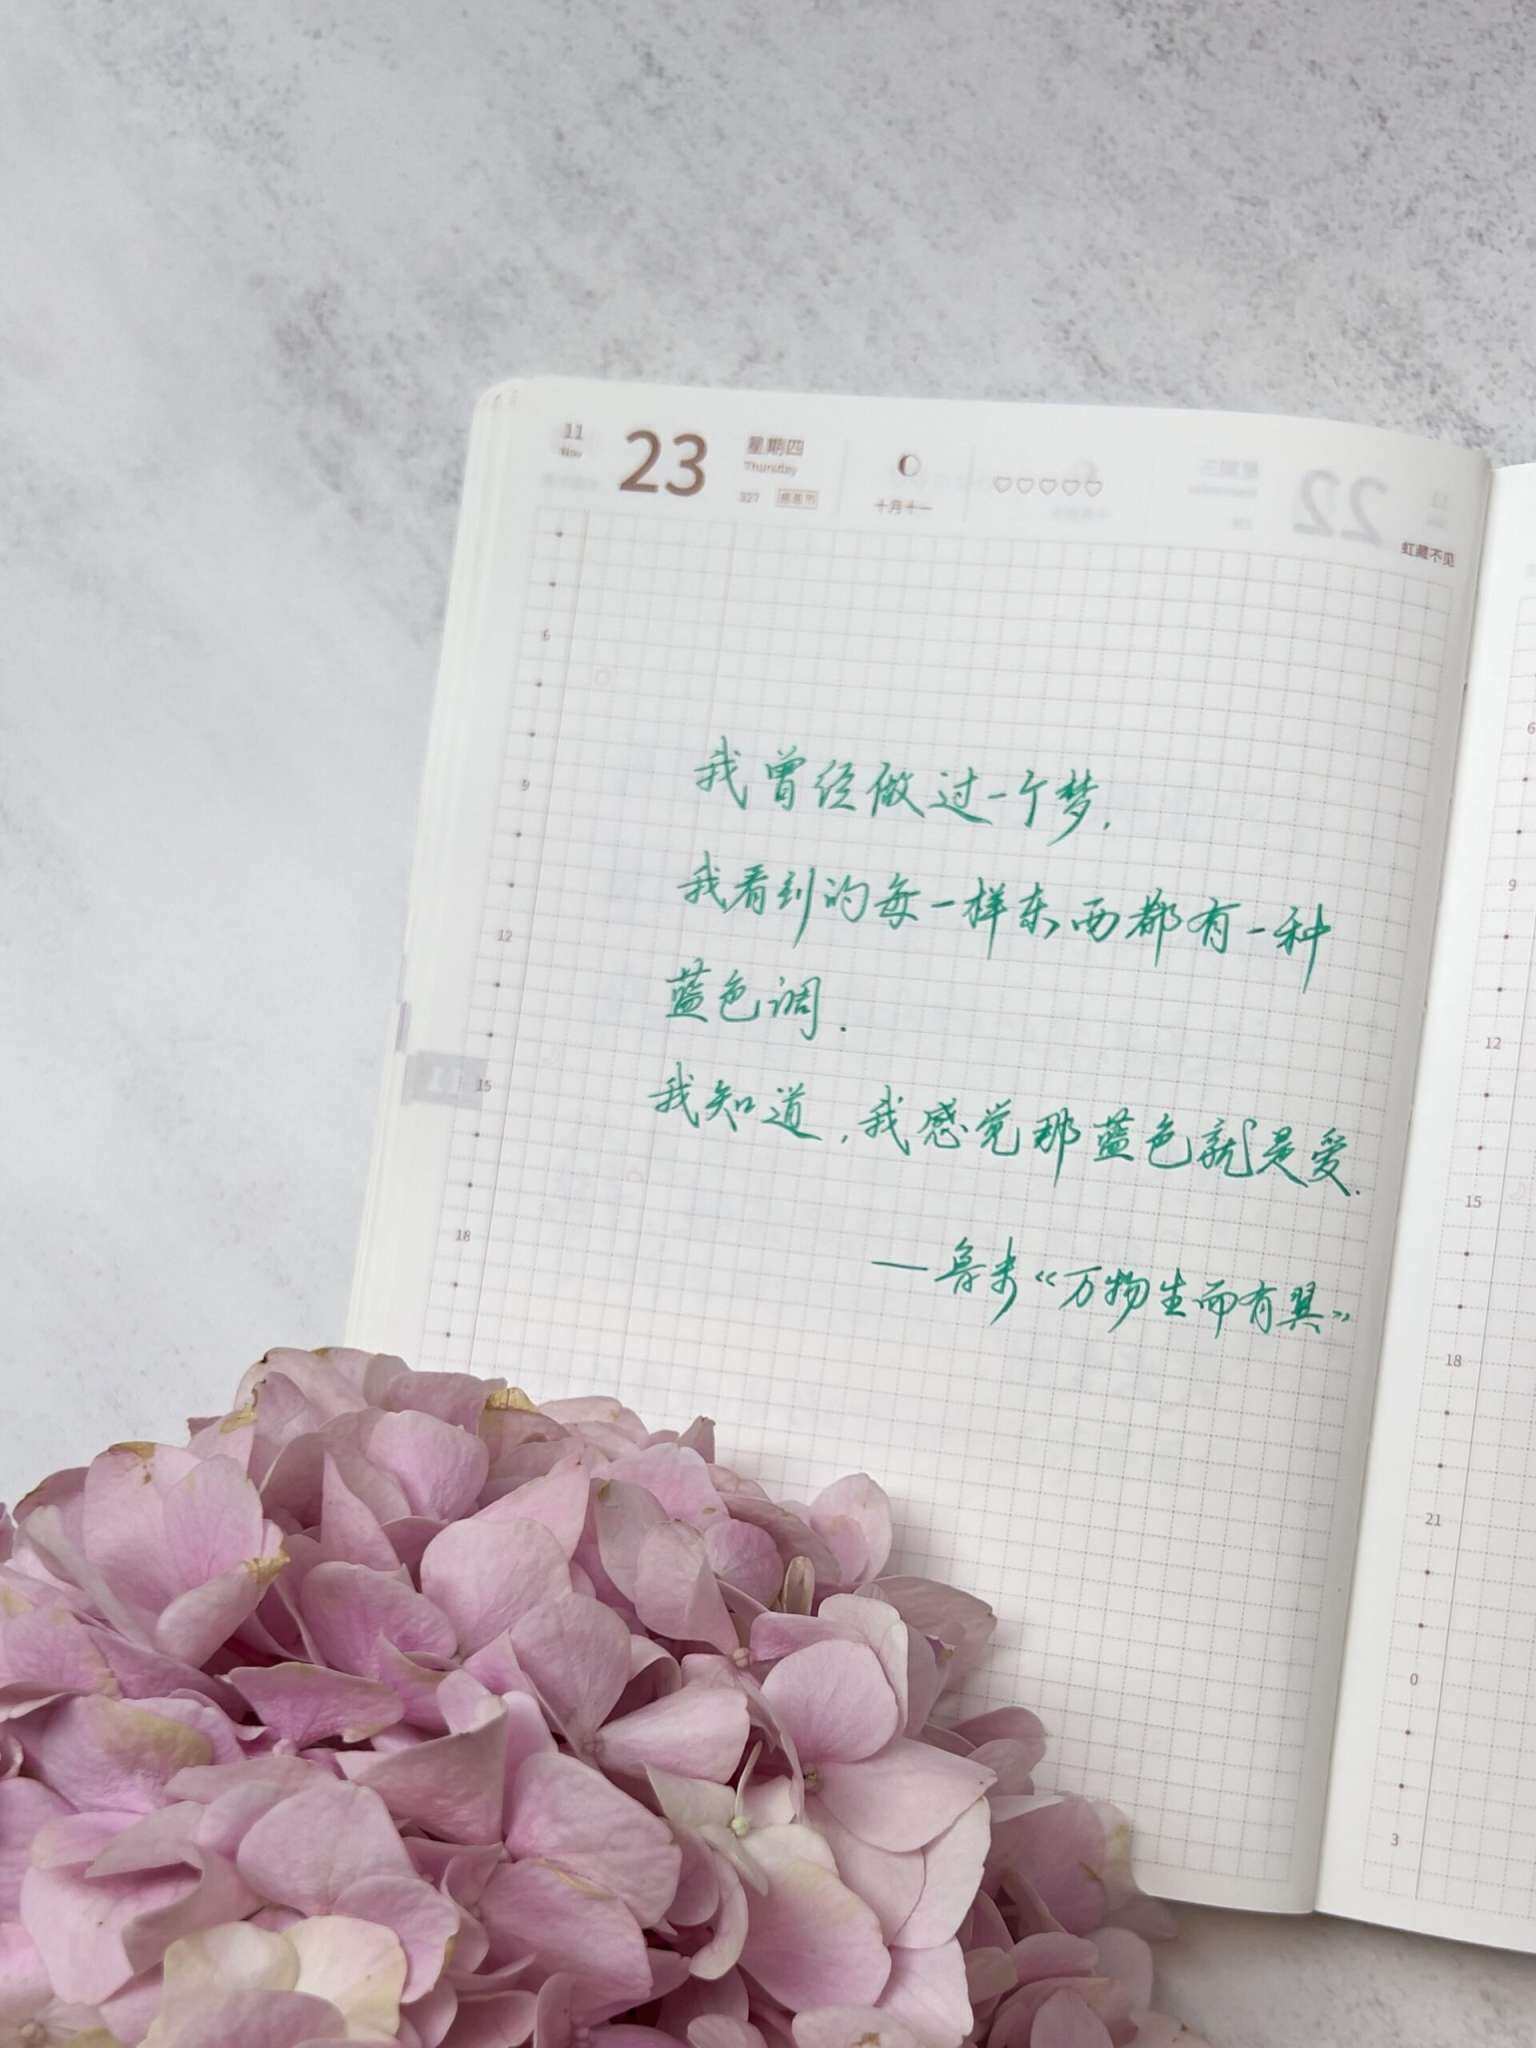 11
Nov
23
星期四
Thursday
327
感恩节
十月十一
虹藏不见
6
9
12
15
18
我曾经做过一个梦.
我看到的每一样东西都有一种
蓝色调.
我知道,我感觉那蓝色就是爱.
—鲁米《万物生而有翼》
6
9
12
15
18
21
0
3